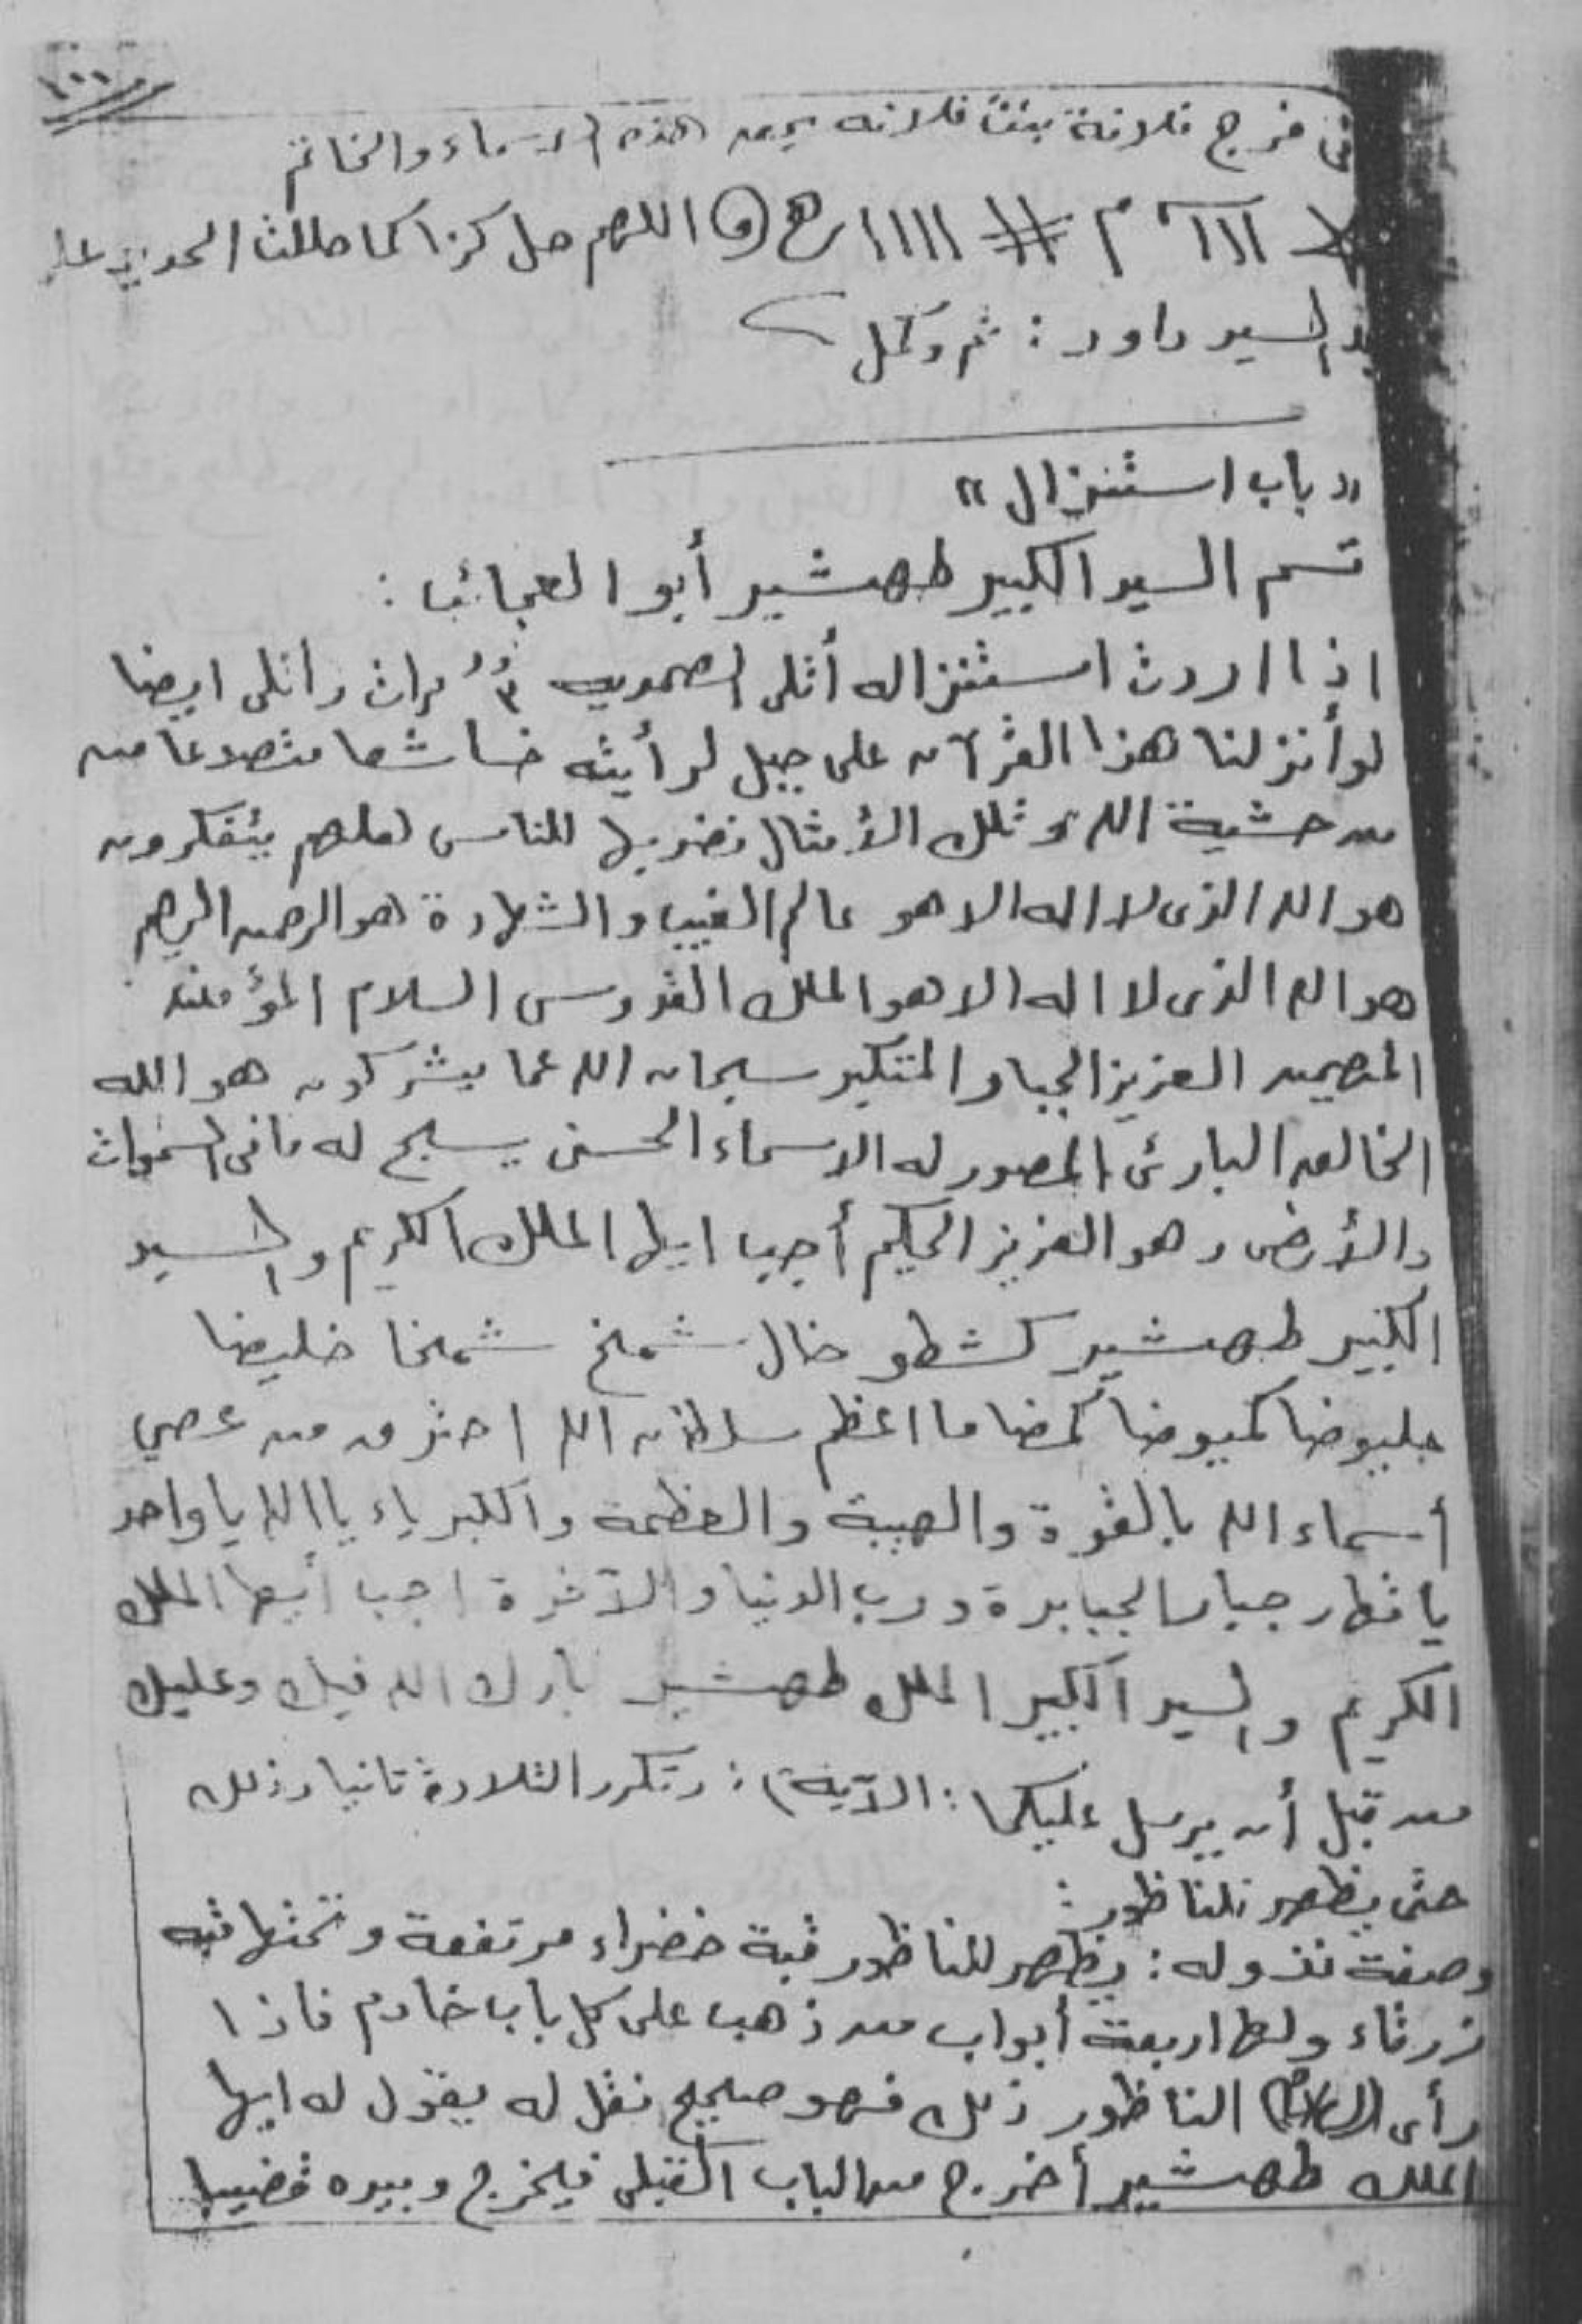 فى فرج فلانة بنت فلانه بحق هذه الاسماء والخاتم
ااا م # اااا ھ و اللهم حل كذا كما حللت الحديد على
يد السيد داود : ثم وكل
" باب استنزال "
قسم السيد الكبير طهشير أبو العجائب :
اذا اردت استنزاله أتلى الصمديه ٣ مرات واتلى ايضا
لو أنزلنا هذا القرآن على جبل لرأيته خاشعا متصدعا من
من خشية الله وتلك الأمثال نضربها للناس لعلهم يتفكرون
هو الله الذى لا اله الا هو عالم الغيب والشهادة هو الرحمن الرحيم
هو الله الذى لا اله الا هو الملك القدوس السلام المؤمن
المهيمن العزيز الجبار المتكبر سبحان الله عما يشركون هو الله
الخالق البارئ المصور له الاسماء الحسنى يسبح له مافى السموات
والأرض وهو العزيز الحكيم أجب ايها الملك الكريم والسيد
الكبير طهشير كشطو خال شملخ شملخا خليضا
جليوضا كميوضا كمضا ما اعظم سلطان الله احترق من عصي
أسماء الله بالقوة والهيبة والعظمة والكبرياء يا الله يا واحد
يا قهار جبار الجبابرة ورب الدنيا والآخرة اجب أيها الملك
الكريم والسيد الكبير الملك طهشير بارك الله فيك وعليك
من قبل أن يرسل عليكما : الآية) : وتكرر التلاوة ثانيا وذلك
حتى يظهر للناظور :
وصفة نزوله : يظهر للناظور قبة خضراء مرتفعة وتحتها قبه
زرقاء ولها اربعة أبواب من ذهب على كل باب خادم فاذا
رأى الناظور ذلك فهو صحيح فقل له يقول له ايها
الملك طهشير أخرج من الباب القبلى فيخرج وبيده قضيب